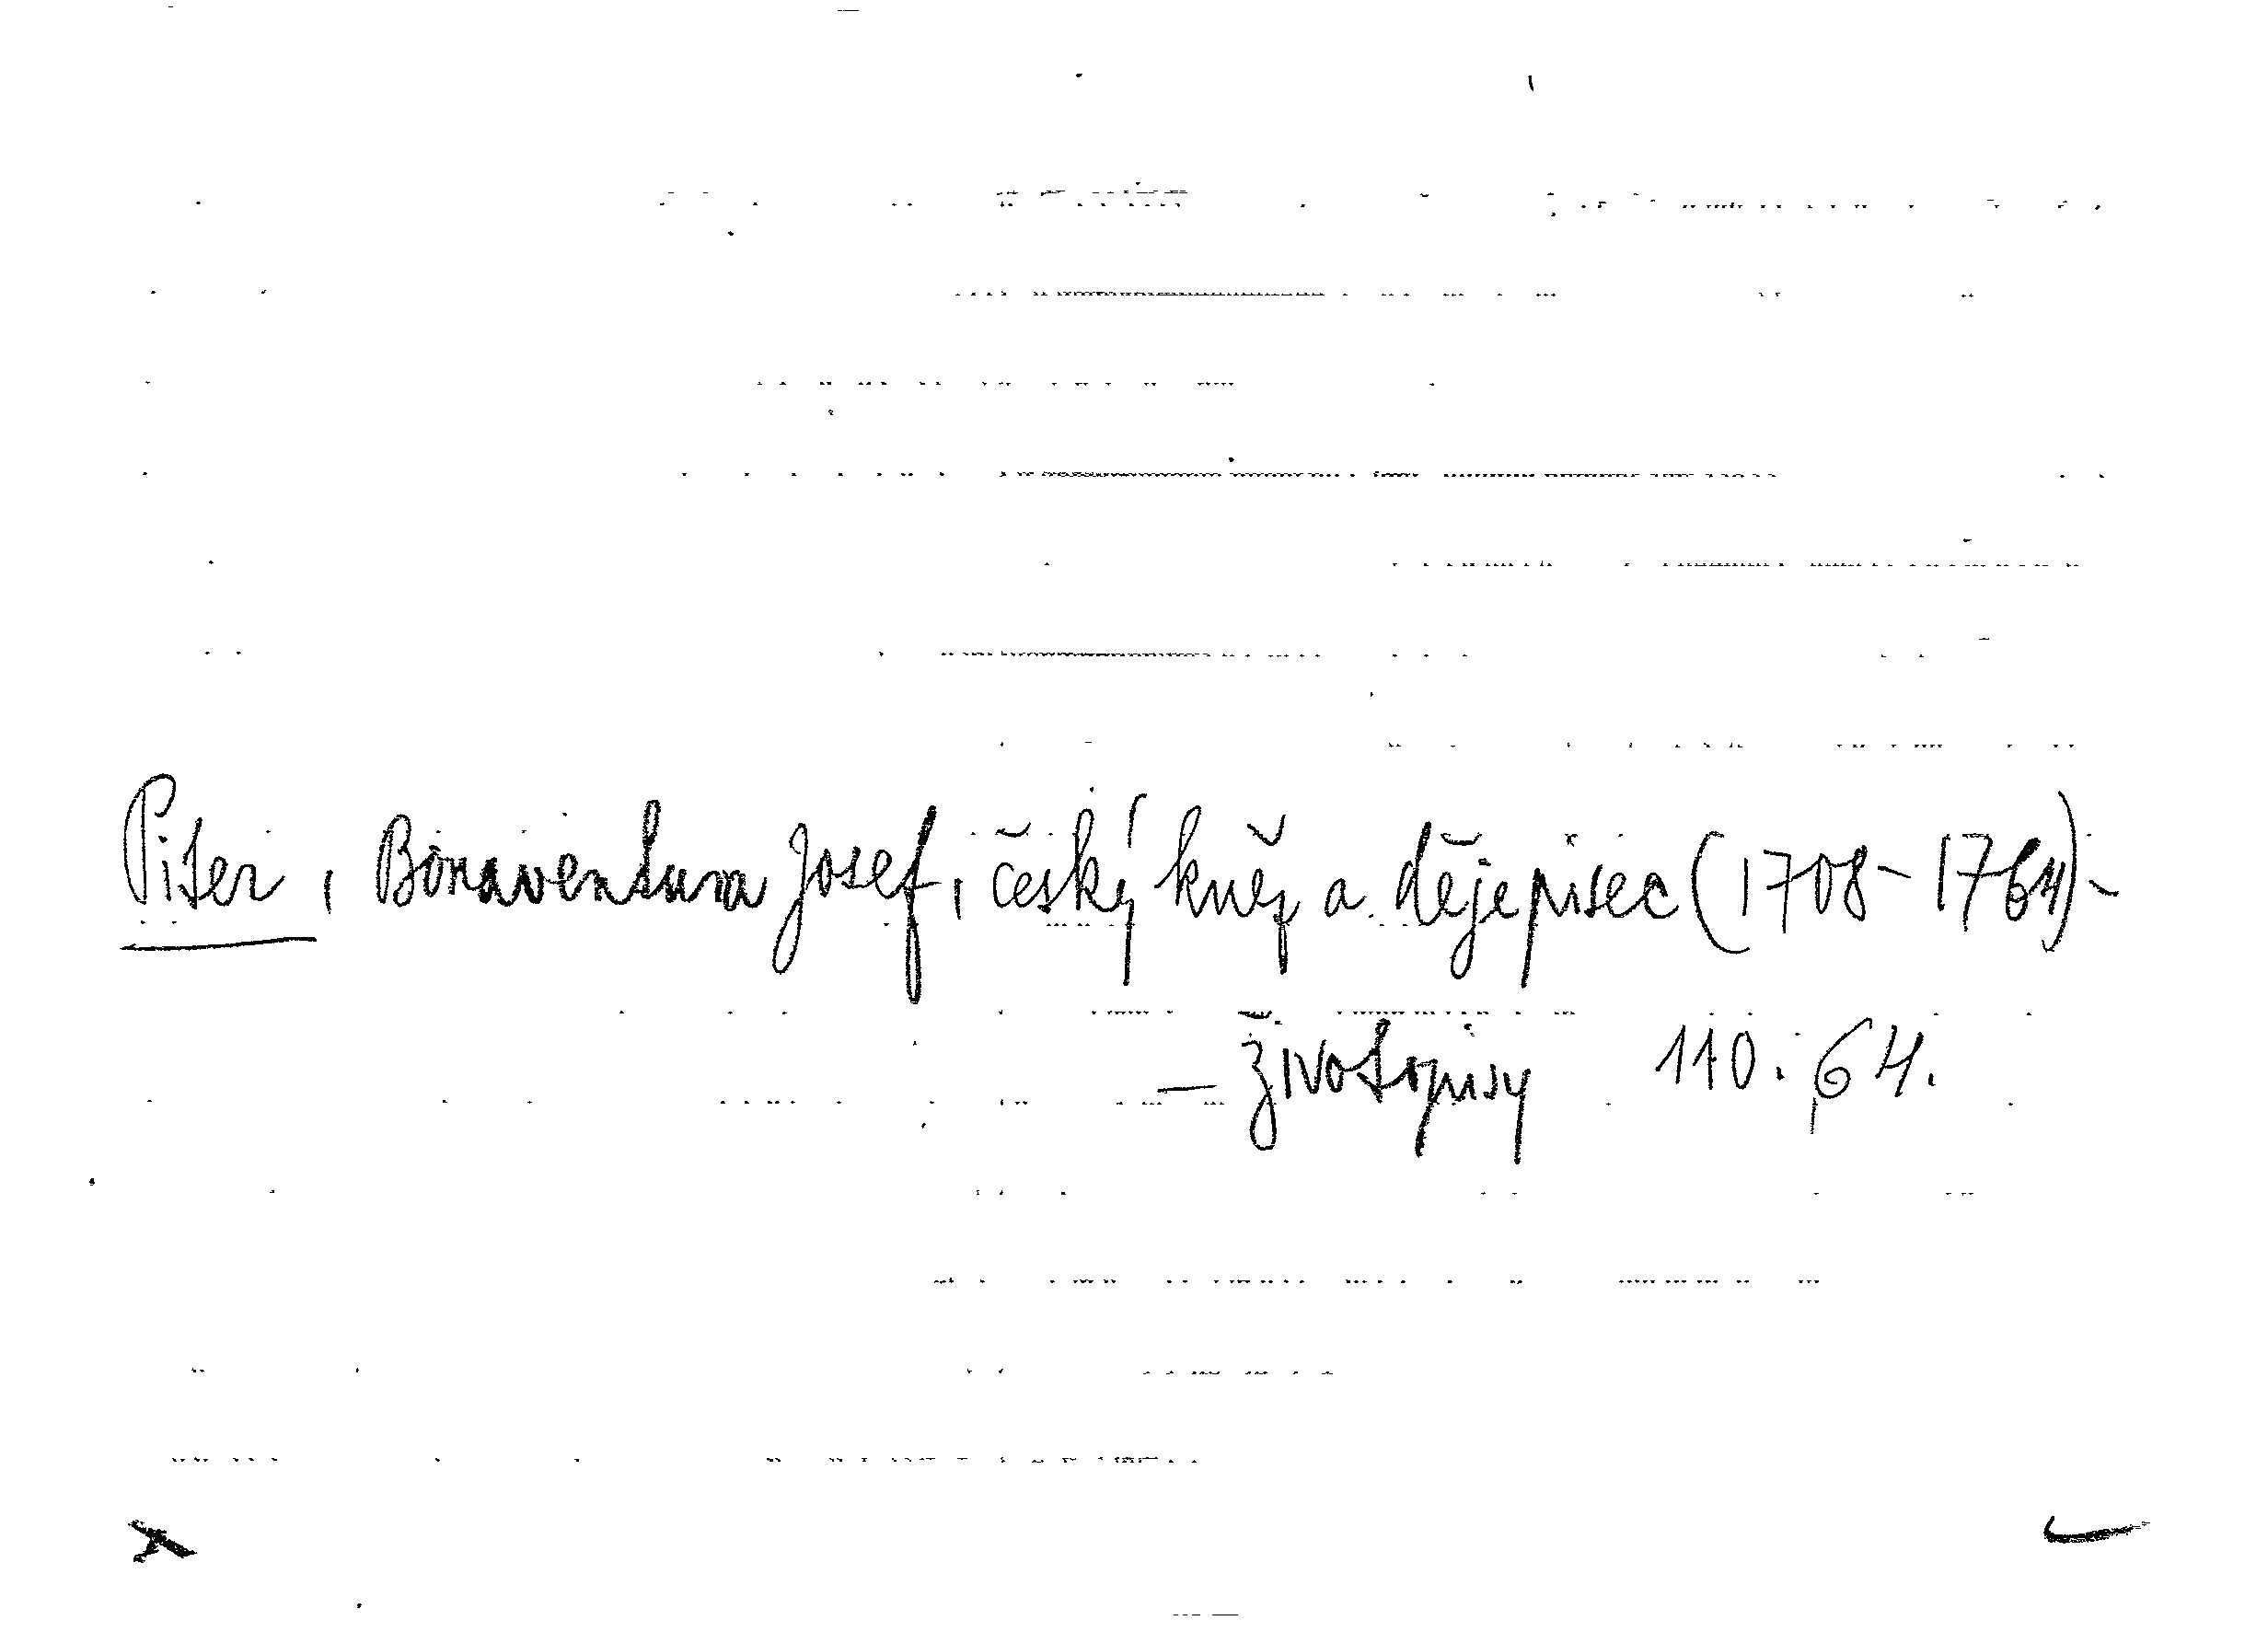 Piter, Bonaventura Josef, český kněz a dějepisec (1708-1764)-
- životopisy 110.64.